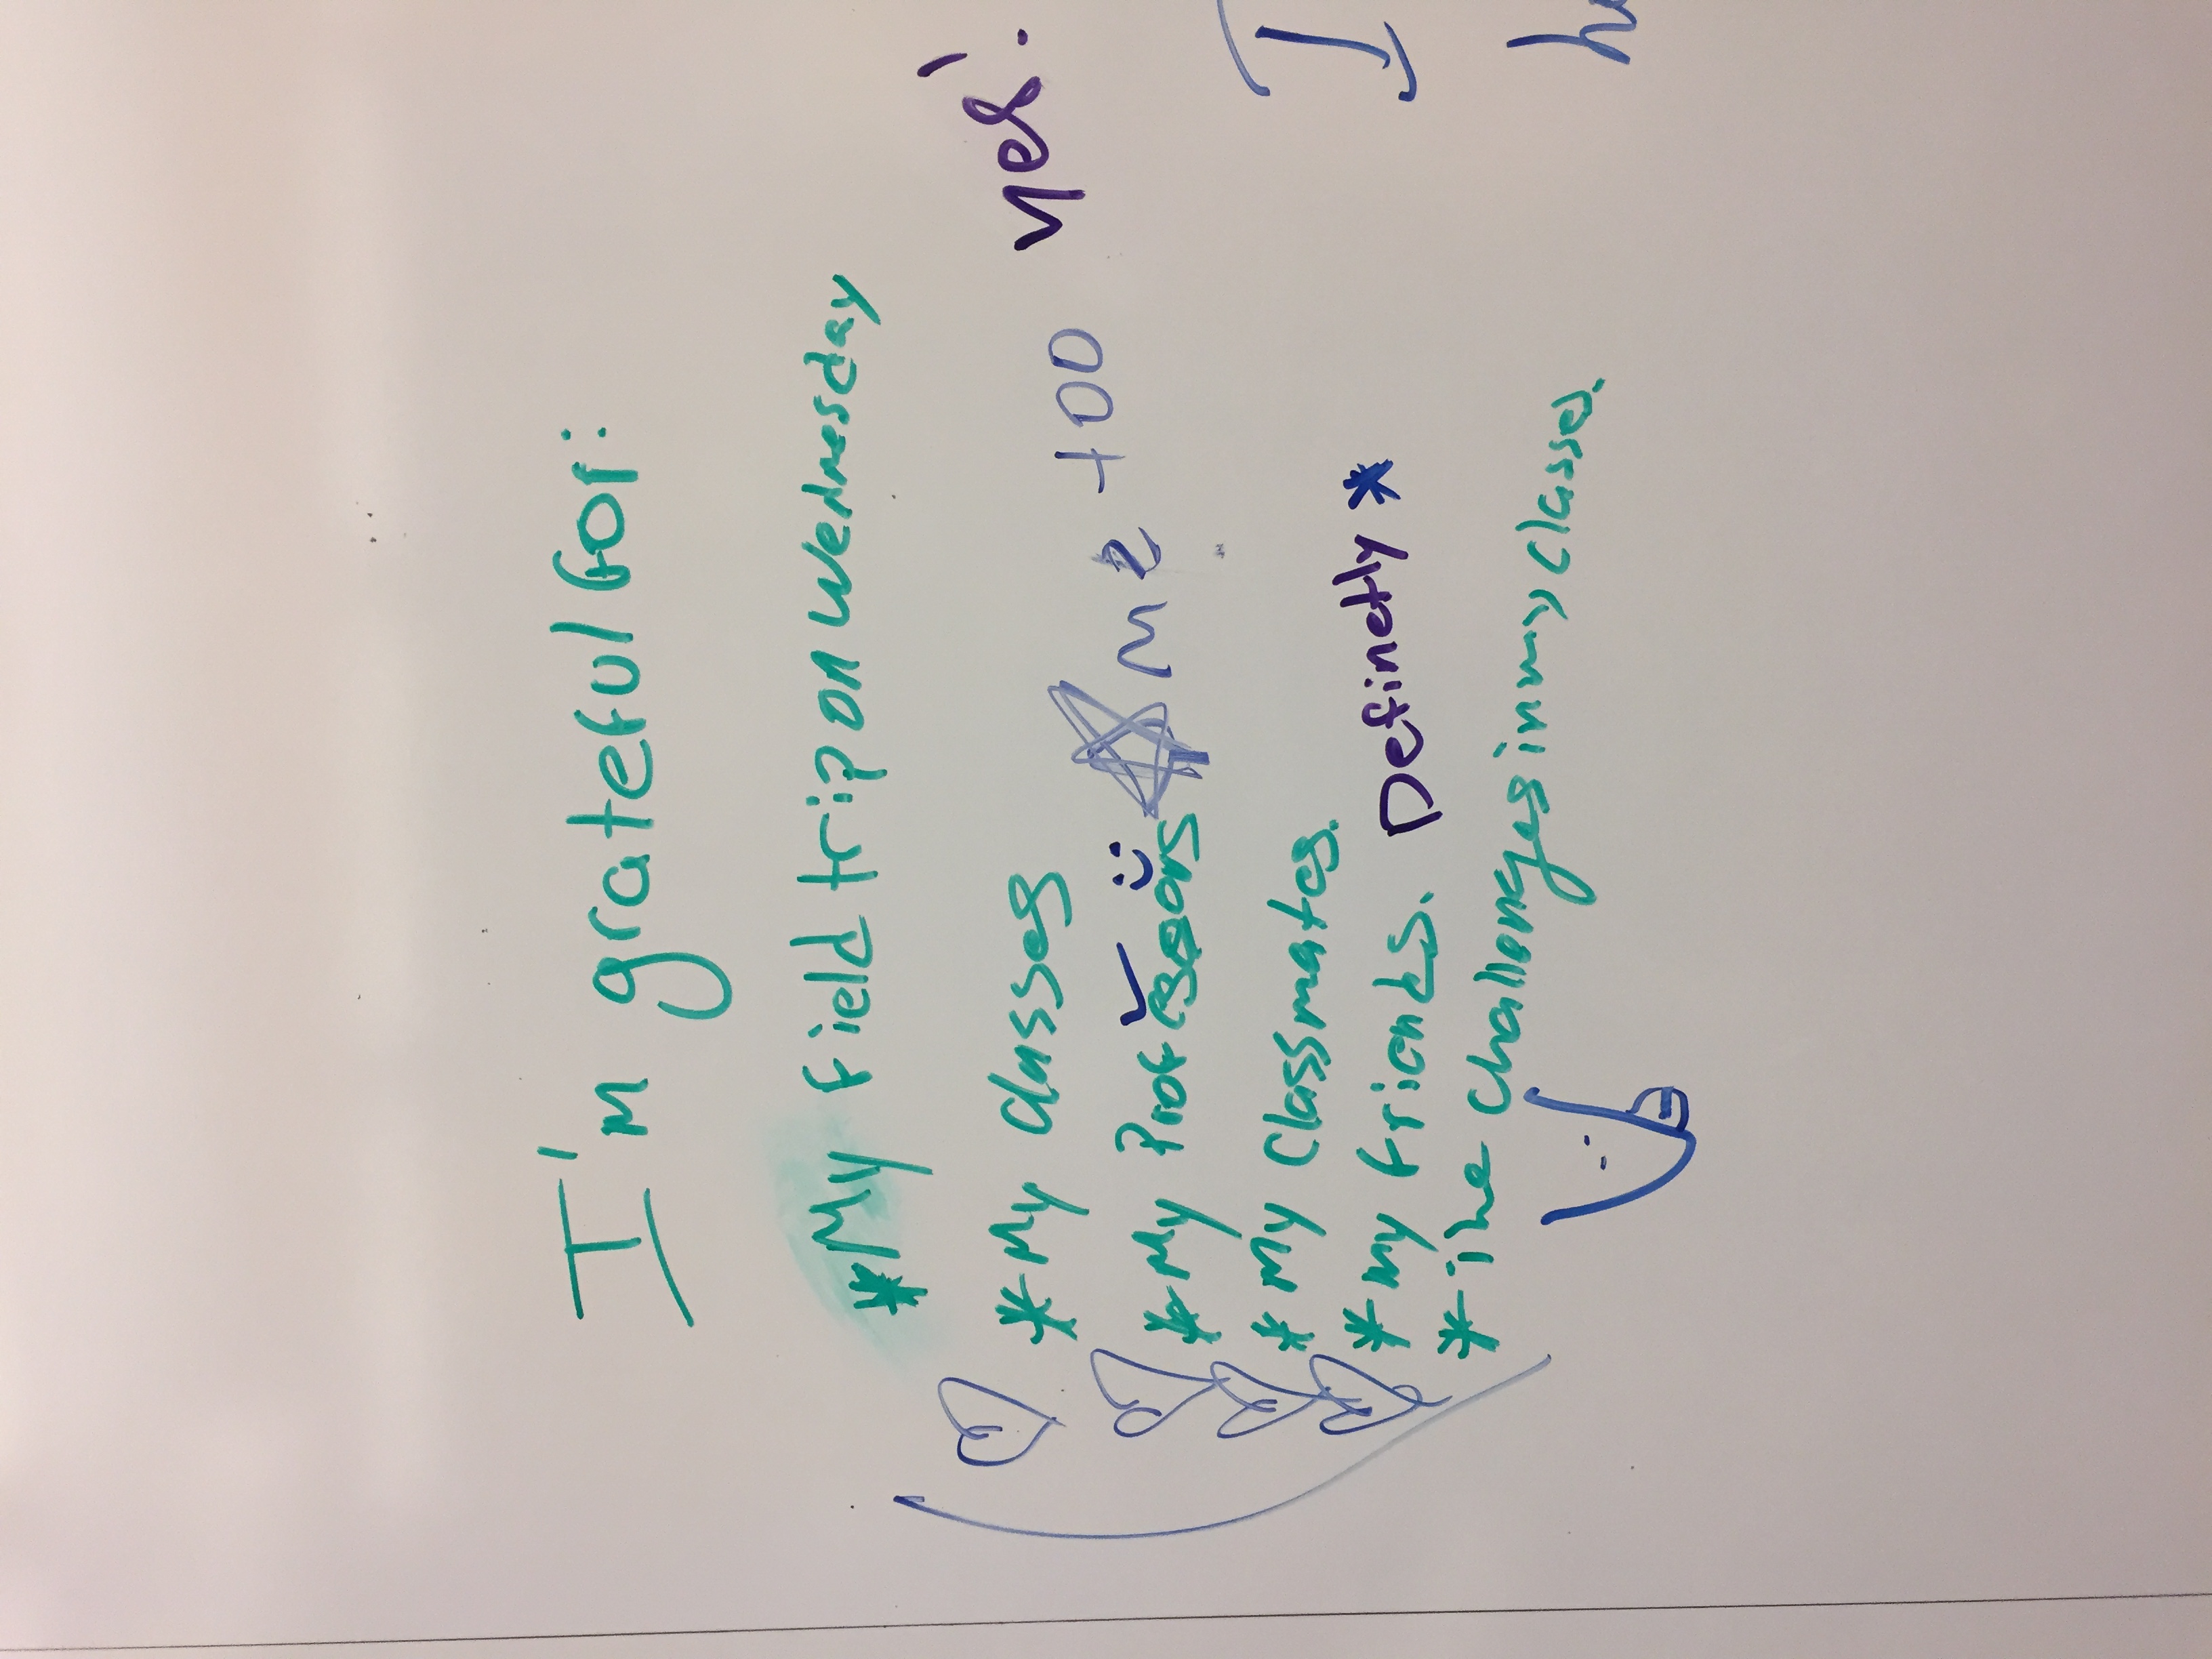 I'm grateful for:
*My field trip on Wednesday
*My classes
yes!
*My Professors
me too
*My Classmates.
*my friends. Definetly *
*the challenges in my classes.
I